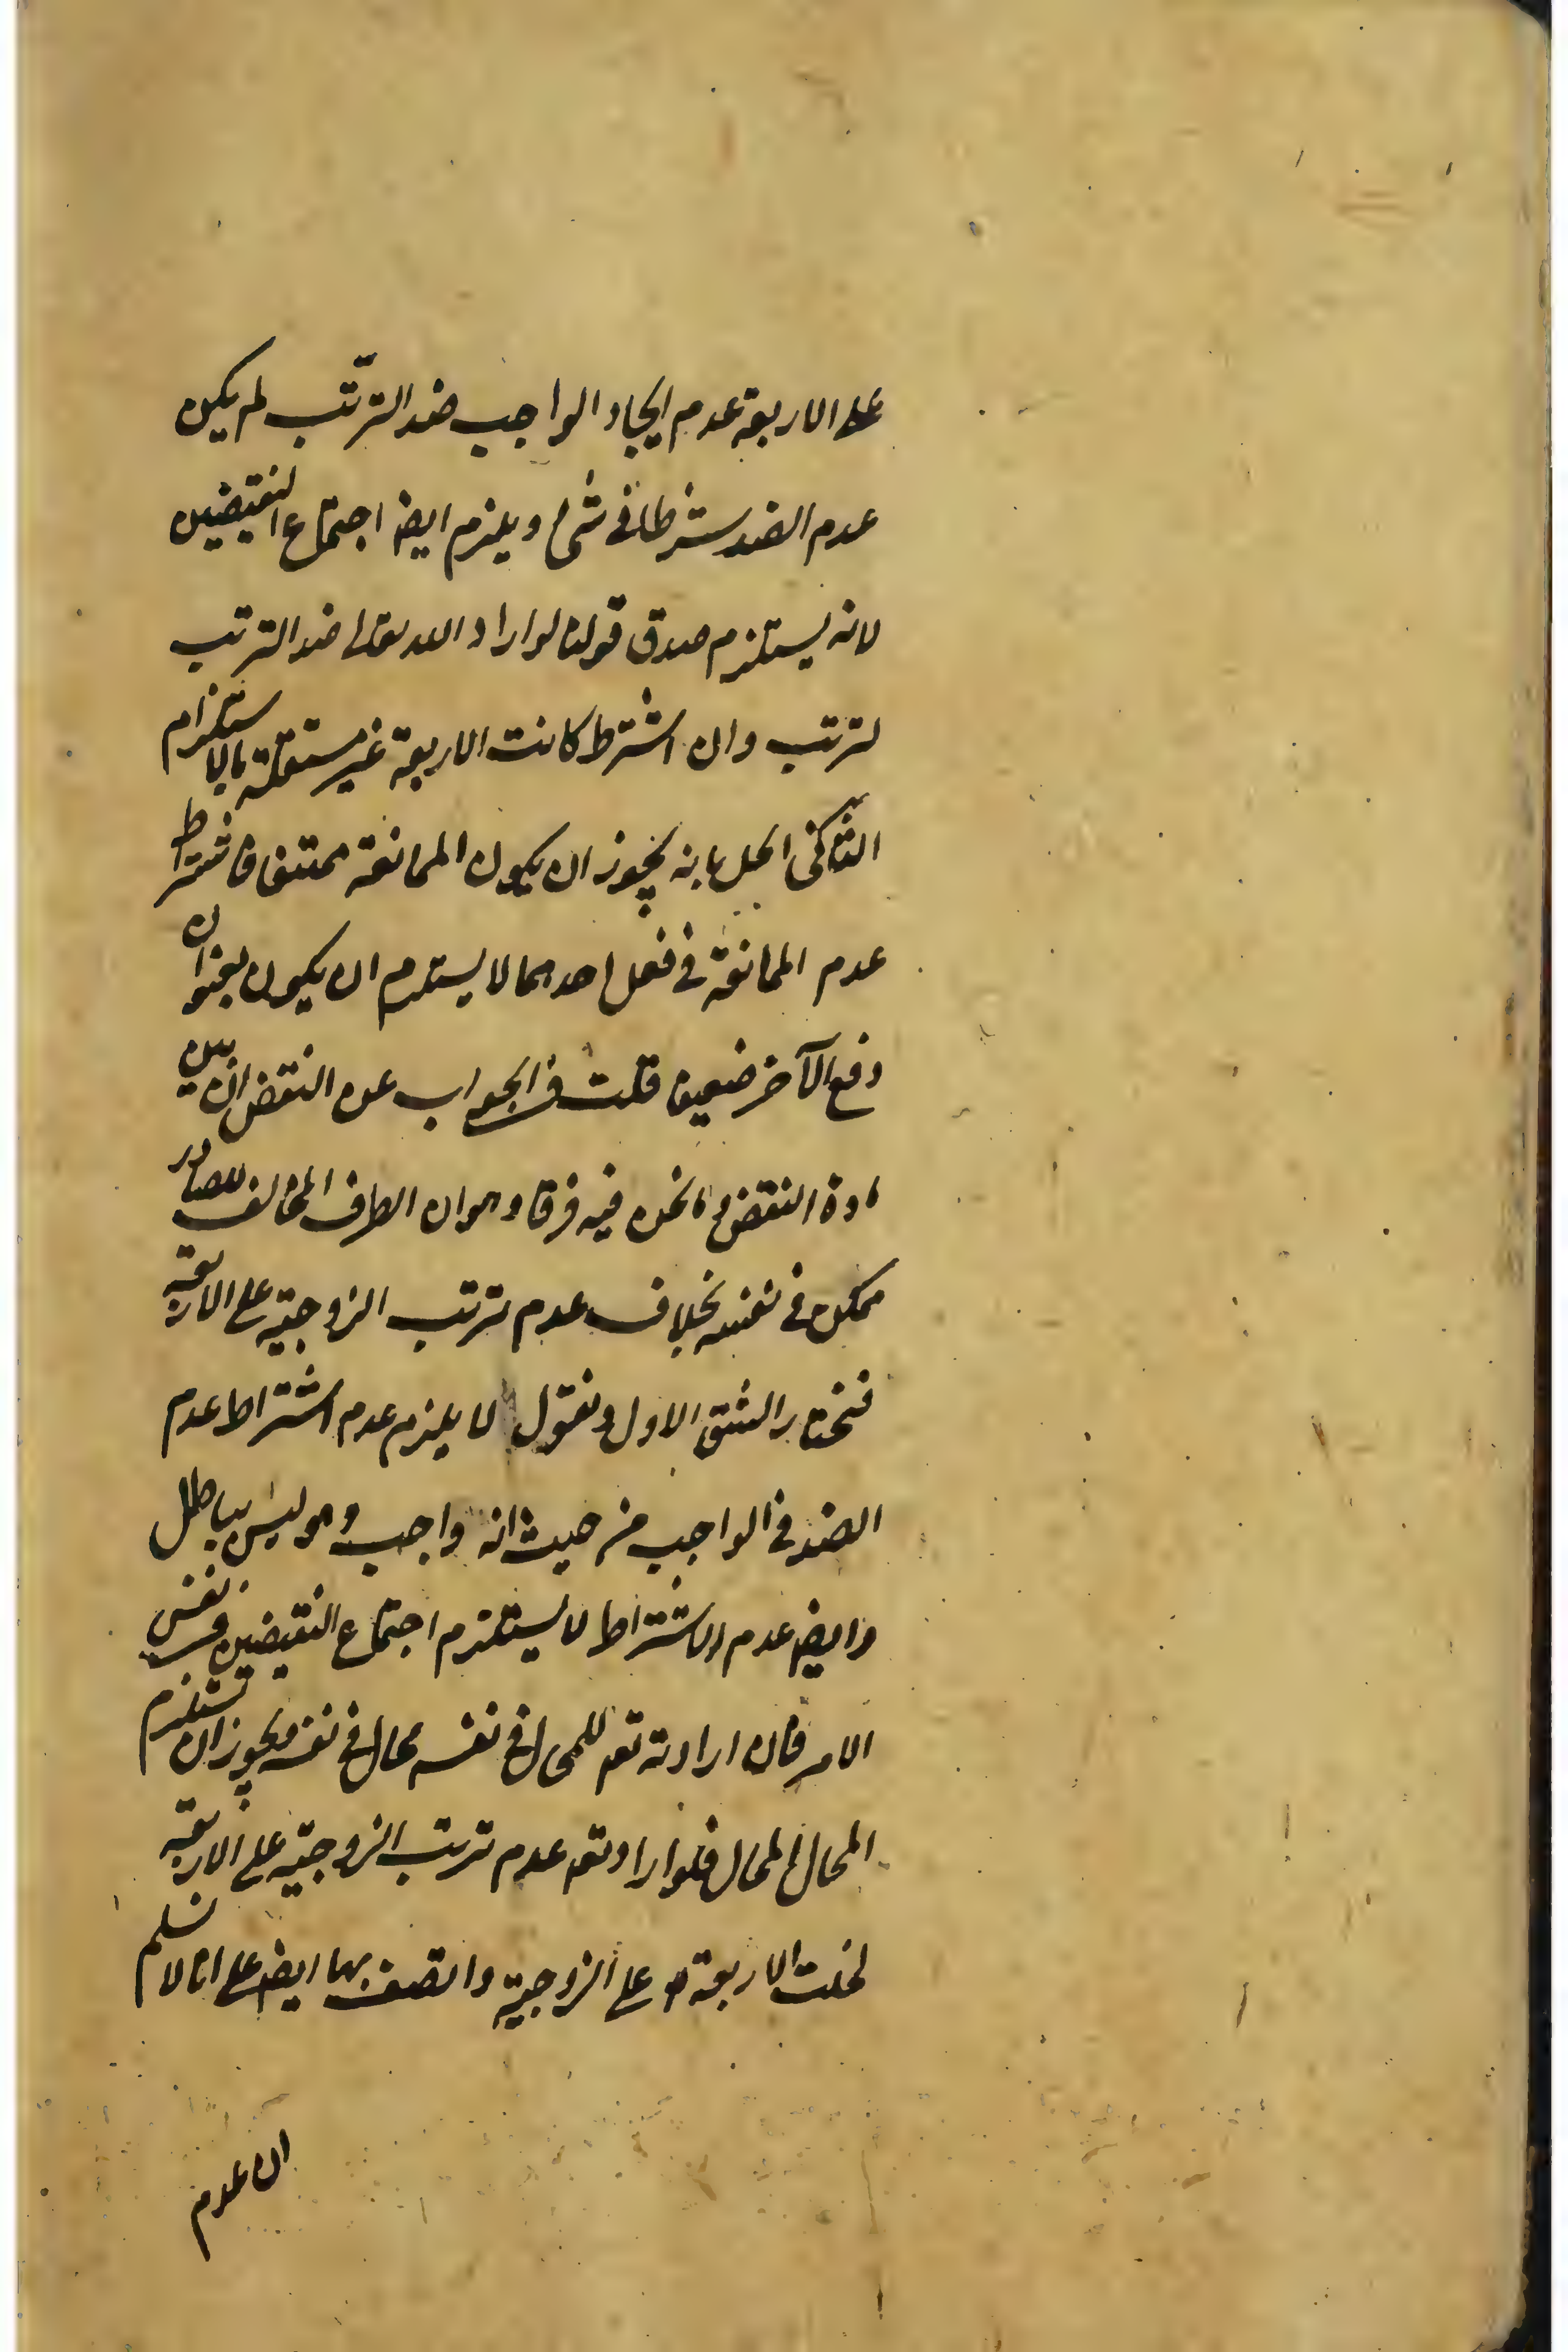 على الاربعة عدم ايجاد الواجب ضد الترتّب لم يكن
عدم الضد شرطا فى شئ ويلزم ايض اجتماع النقيضين
لانه يستلزم صدق قولنا لو اراد الله تعالى ضد الترتب
لترتب وان اشترط كانت الاربعة غير مستقلة بالاستلزام
الحل بانه يجوز ان يكون الممانعة ممتنعا فاشتراط
عدم الممانعة فى فعل احدهما لا يستلزم ان يكون بعنوان
دفع الآخر ضعيف قلت فى الجواب عن النقض ان بين
مادة النقض وما نحن فيه فرقا وهو ان الطرف المخالف للصادر
ممكن فى نفسه بخلاف عدم ترتب الزوجية على الاربعة
فنختار الشق الاول ونقول لا يلزم عدم اشتراط عدم
الضد فى الواجب من حيث انه واجب وهو ليس بباطل
وايض عدم الاشتراط لا يستلزم اجتماع النقيضين فى نفس
الامر فان ارادته تع للمحال فى نفسه محال فى نفسه فيجوز ان يستلزم
المحال المحال فلو اراد تع عدم ترتب الزوجية على الاربعة
لخلت الاربعة عن الزوجية واتصف بها ايض على انا لا نسلم
ان عدم